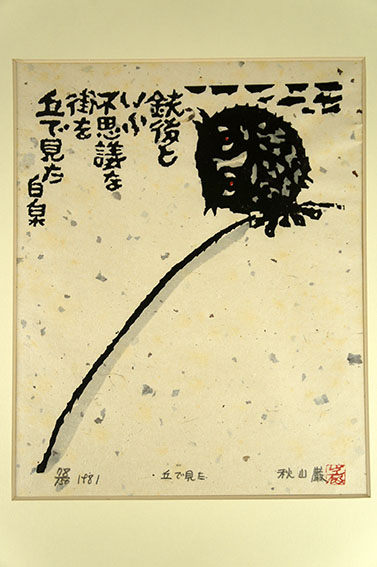 銃後と
いふ
不思議な
街を
丘で見た
白泉
1981
丘で見た
秋山巌